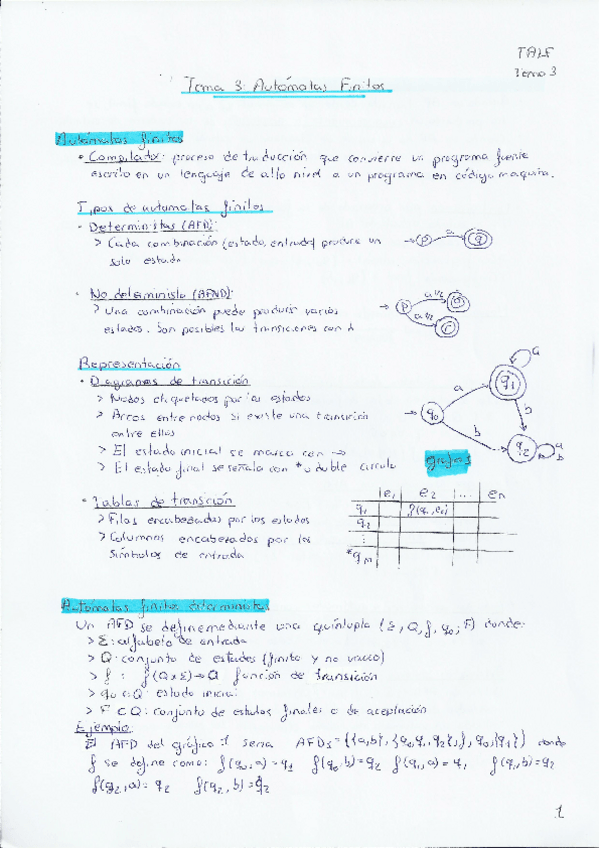 TALF
Tema 3
Tema 3: Autómatas Finitos
Autómatas finitos
• Compilador: proceso de traducción que convierte un programa fuente
escrito en un lenguaje de alto nivel a un programa en código maquina.
Tipos de automatas finitos
• Deterministas (AFD):
> Cada combinación (estado, entrada) produce un
solo estado
→ p a q
• No determinista (AFND):
> Una combinación puede producir varios
estados. Son posibles las transiciones con λ
→ p
Representación
• Diagramas de transición
> Nodos etiquetados por los estados
> Arcos entre nodos si existe una transición
entre ellos
> El estado inicial se marca con →
> El estado final se señala con * o doble circulo
→ q0 a q1 a b b q2 a b
grafos
• Tablas de transición
> Filas encabezadas por los estados
> Columnas encabezadas por los
símbolos de entrada
e1 e2 ... en
q1 f(q1, e2)
q2
:
*qm
Autómatas finitos deterministas
Un AFD se define mediante una quíntupla (Σ, Q, f, q0, F) donde:
> Σ: alfabeto de entrada
> Q: conjunto de estados (finito y no vacio)
> f: f(Q x Σ) → Q función de transición
> q0 ∈ Q: estado inicial
> F ⊂ Q: conjunto de estados finales o de aceptación
Ejemplo:
El AFD del gráfico 1 seria AFD1 = ({a,b}, {q0, q1, q2}, f, q0, {q1}) donde
f se define como: f(q0, a) = q1 f(q0, b) = q2 f(q1, a) = q1 f(q1, b) = q2
f(q2, a) = q2 f(q2, b) = q2
1